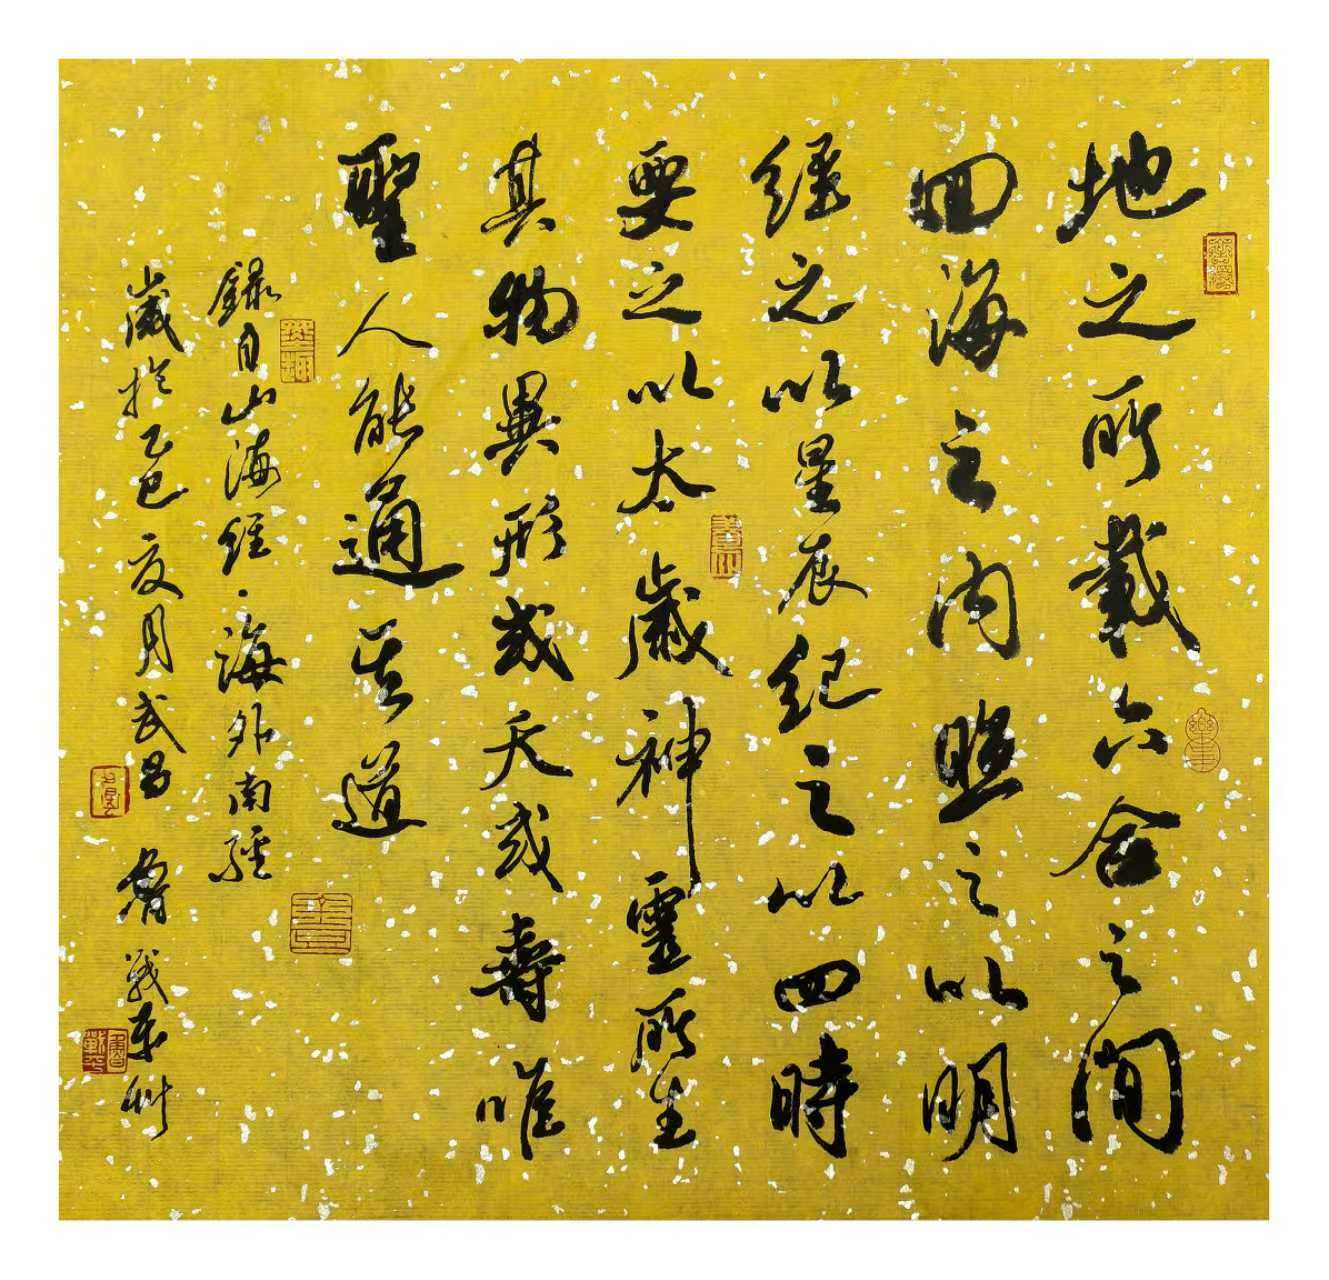 地之所載六合之間
四海之內照之以明
經之以星辰紀之以四時
要之以太歲神靈所生
其物異形或夭或壽唯
聖人能通其道
錄自山海經·海外南經
歲於乙巳夏月武昌 魯戰